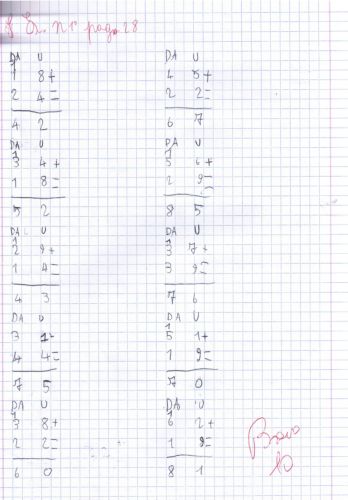 pag. 28
DA U
1 8+
2 4=
4 2
DA U
1
3 4+
1 8=
5 2
DA U
1
2 9+
1 4=
4 3
DA U
3 1+
4 4=
7 5
DA U
1
3 8+
2 2=
6 0
DA U
4 5+
2 2=
6 7
DA U
1
5 6+
2 9=
8 5
DA U
1
3 7+
3 9=
7 6
DA U
1
5 1+
1 9=
7 0
DA U
1
6 2+
1 9=
8 1
Bravo
10